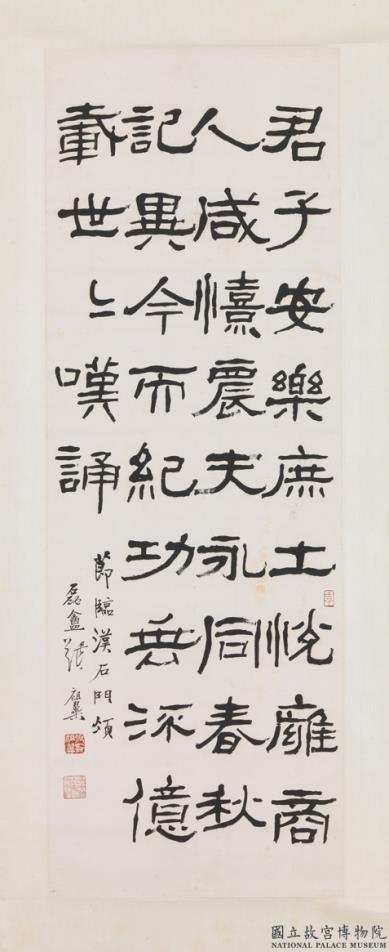 君子安樂庶士悅雍商
人咸憘農夫永同春秋
記異今而紀功垂流億
載世〻嘆誦
節臨漢石門頌
磊盦張祖翼
國立故宮博物院
NATIONAL PALACE MUSEUM